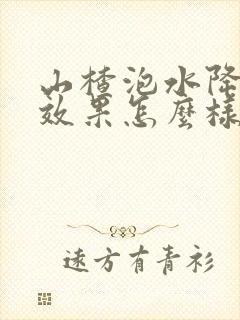 山楂泡水降
效果怎麼樣
遠方有青衫